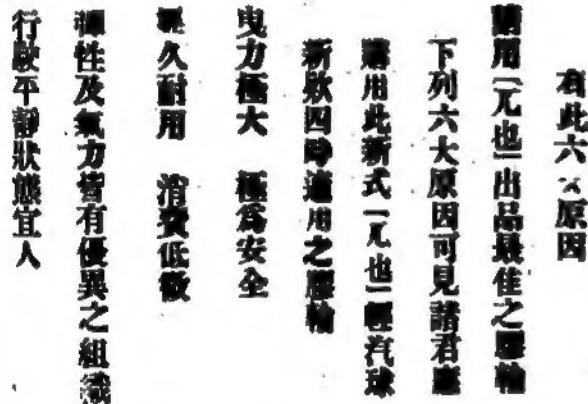 有此六大原因
購用「兀也」出品最佳之膠輪
下列六大原因可見諸君應
購用此新式「兀也」輕汽球
新欵四時適用之膠輪
曳力極大 極爲安全
久耐用 消費低微
彈性及氣力皆有優異之組織
行駛平靜狀態宜人